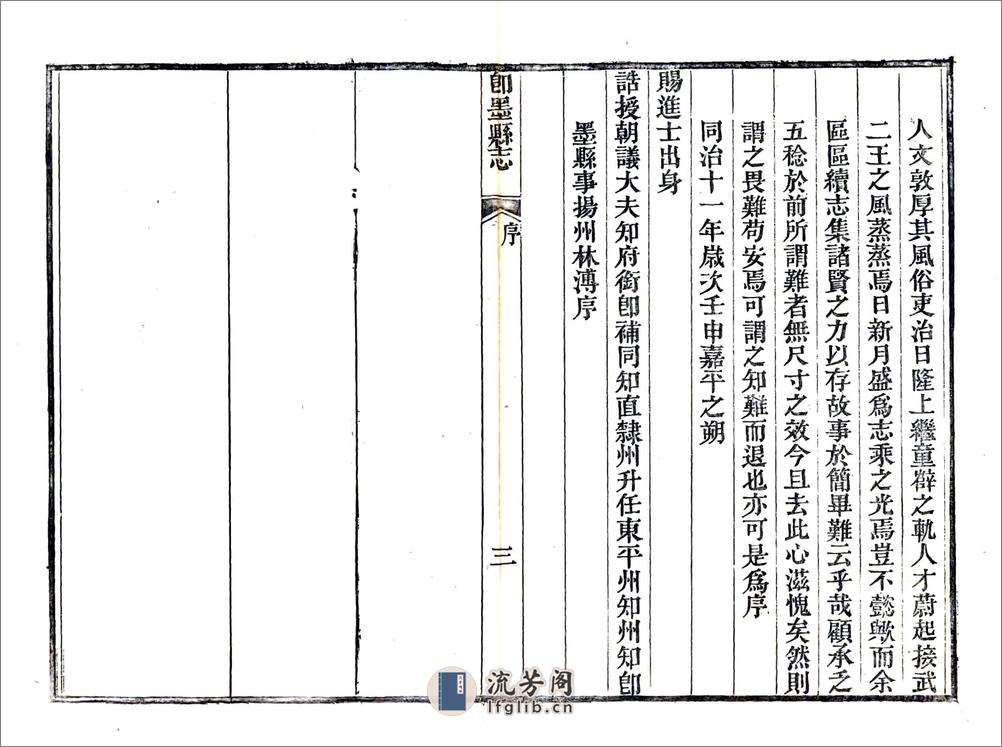 人文敦厚其風俗吏治日隆上繼童辥之軌人才蔚起接武
二王之風蒸蒸焉日新月盛爲志乘之光焉豈不懿歟而余
區區續志集諸賢之力以存故事於簡畢難云乎哉顧承乏
五稔於前所謂難者無尺寸之效今且去此心滋愧矣然則
謂之畏難苟安焉可謂之知難而退也亦可是爲序
同治十一年歲次壬申嘉平之朔
賜進士出身
誥授朝議大夫知府銜卽補同知直隸州升任東平州知州知卽
墨縣事揚州林溥序
卽墨縣志
序
三
流芳阁
lfglib.cn